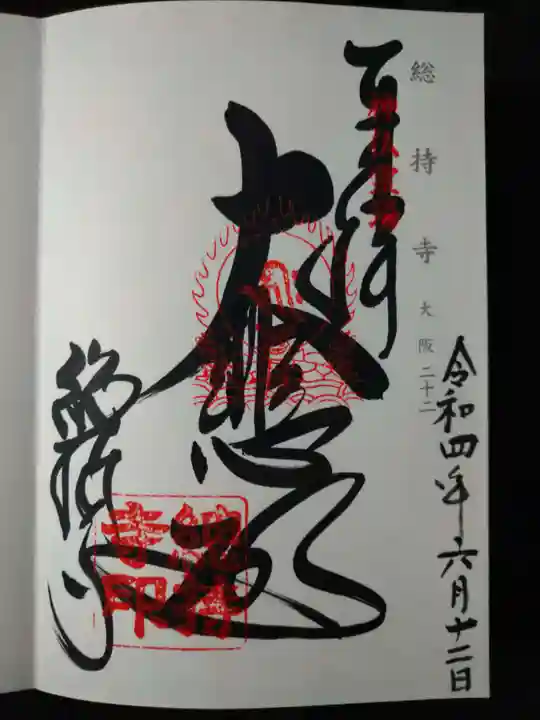 総持寺 大阪 二十二
令和四年六月十二日
奉拝
大悲殿
総持寺
総持寺印